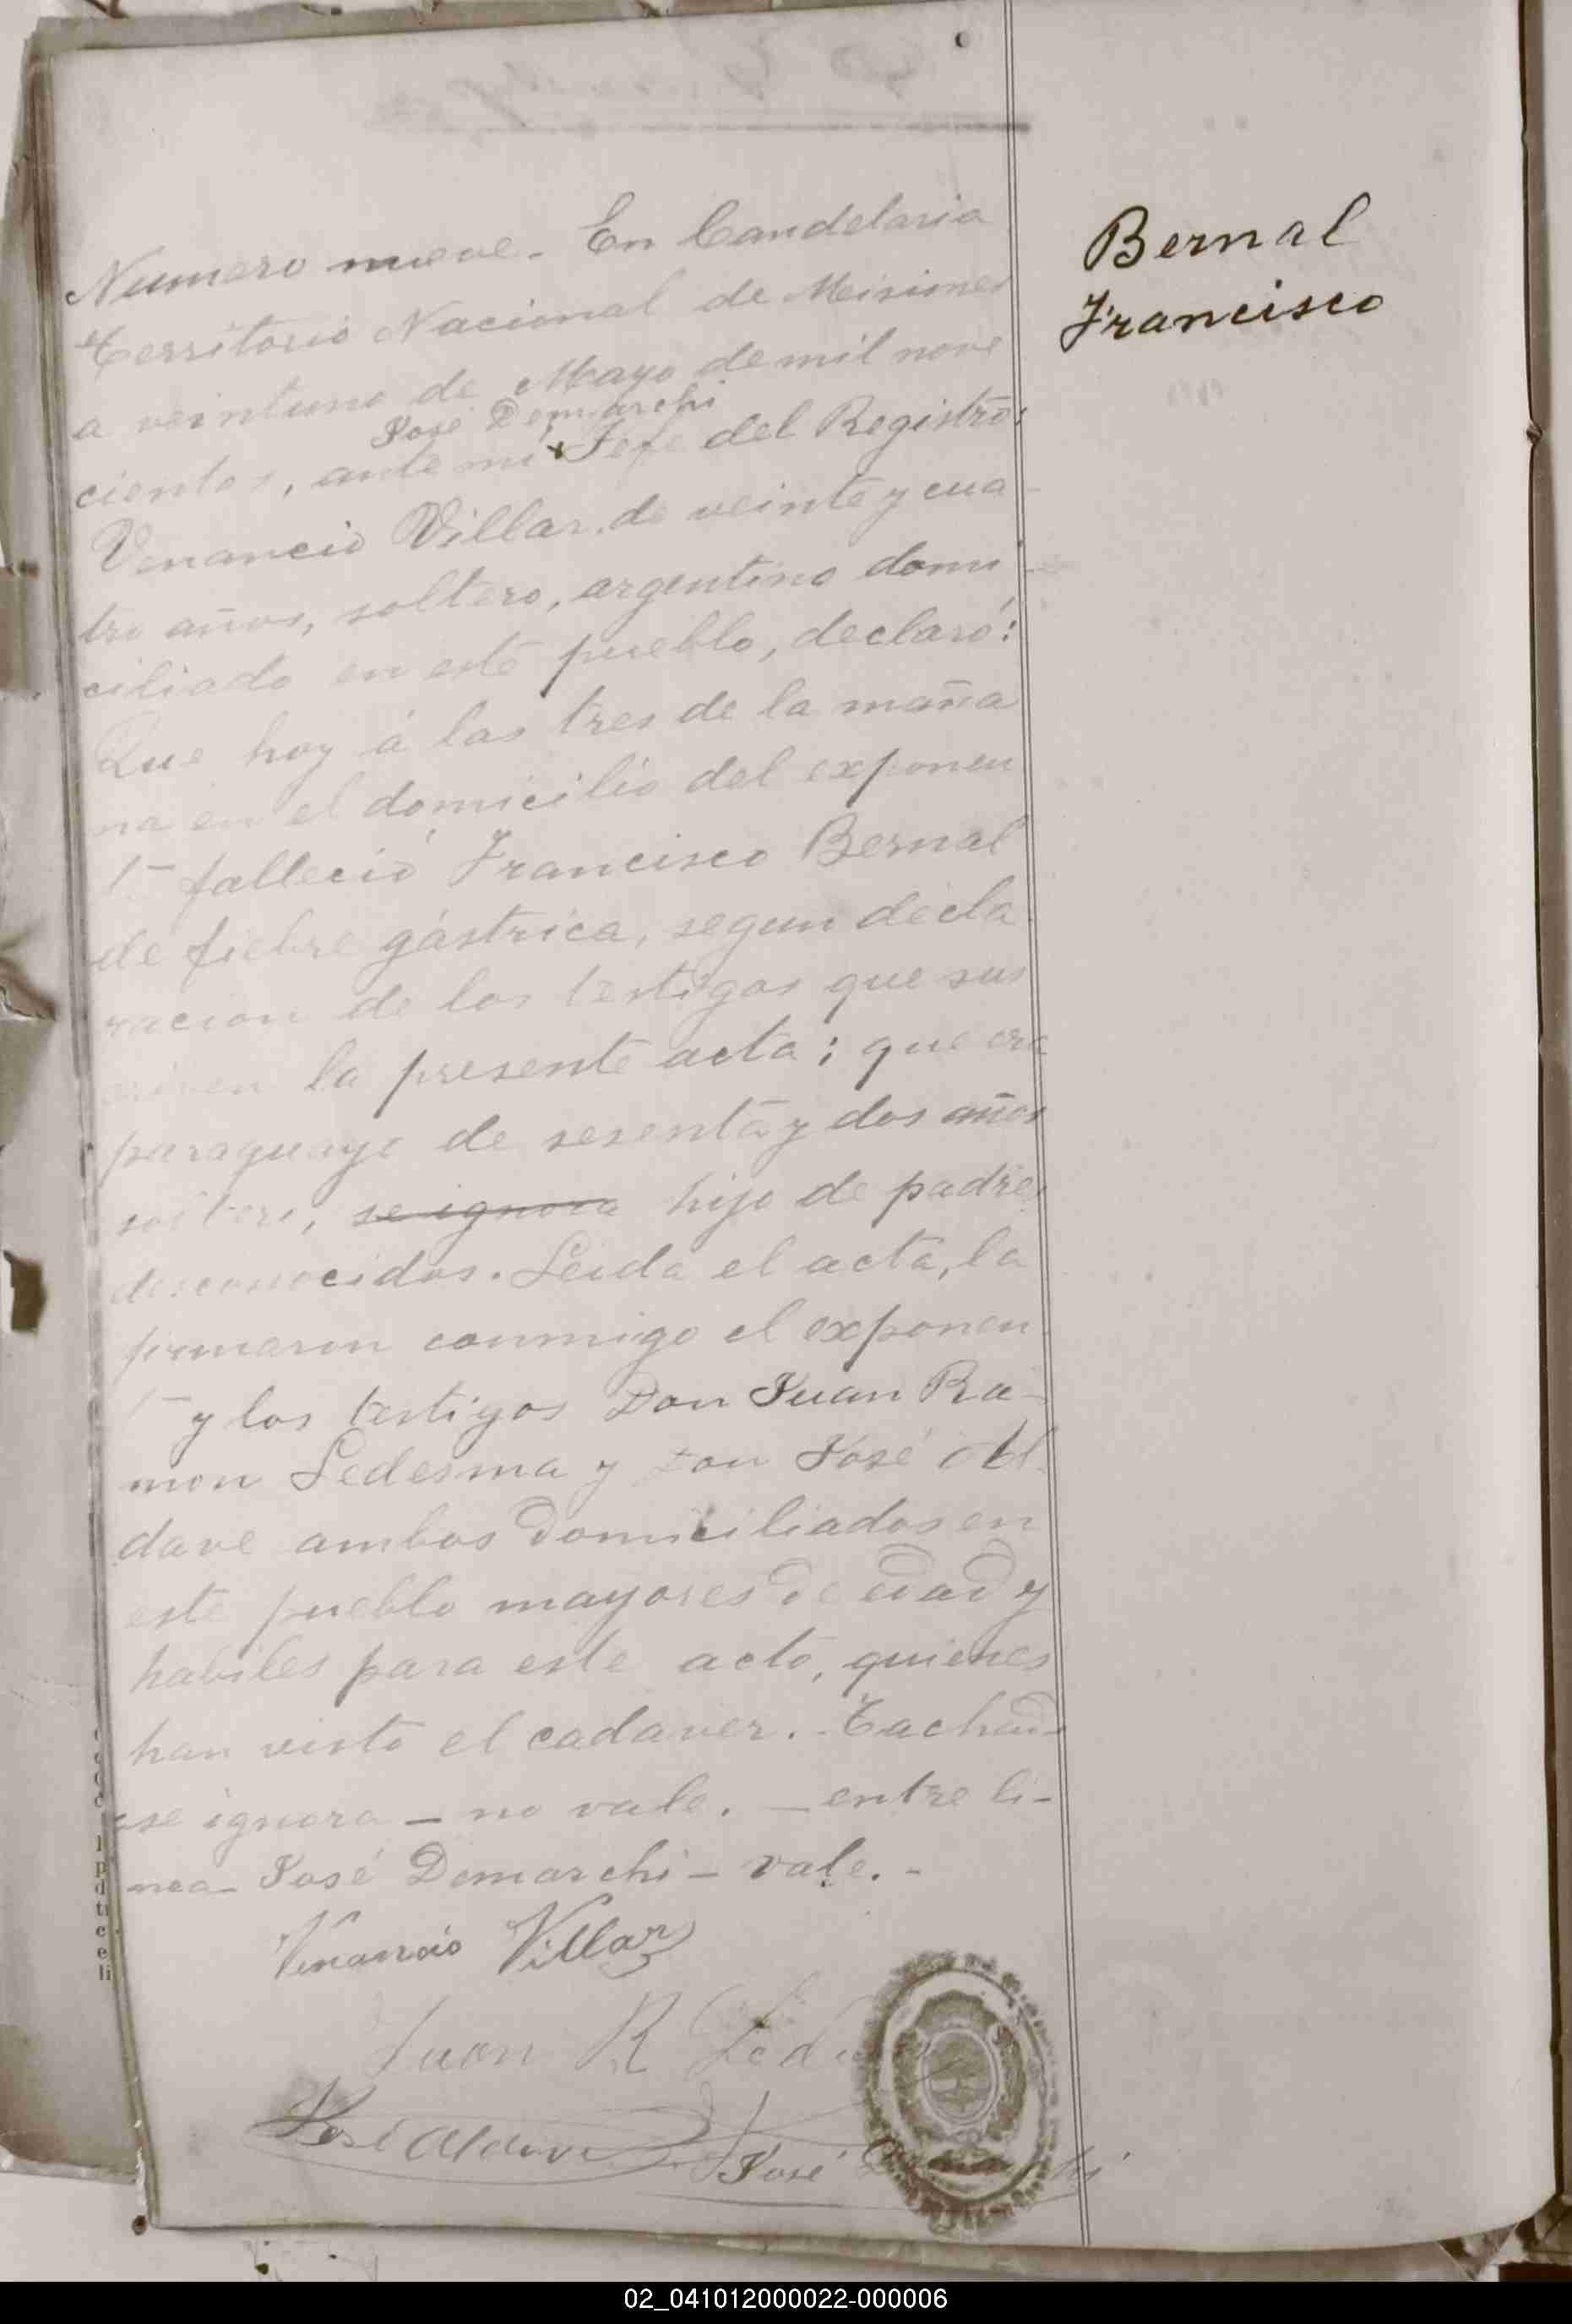 Numero nueve. En Candelaria
Territorio Nacional de Meisiones
a veintuno de Mayo de mil nove
José Demarchi
cientos, ante mi Jefe del Registro,
Venancio Villar. de veinte y cua
tro años, soltero, argentino domi
ciliado en este pueblo, declaró:
Que hoy á las tres de la maña
na en el domicilio del exponen
te falleció Francisco Bernal
de fiebre gástrica, segun decla
racion de los testigos que sus
criven la presente acta; que era
paraguayo de sesenta y dos años
soltero, se ignora hijo de padres
desconocidos. Leida el acta, la
firmaron conmigo el exponen
te y los testigos Don Juan Ra-
mon Ledesma y Don José Al
dave ambos domiciliados en
este pueblo mayores de edad y
habiles para este acto, quienes
han visto el cadaver. - Tachado
se ignora - no vale. - entre li-
nea - José Demarchi - vale. -
Venancio Villar
Juan R Lede
José Aldave
José
Bernal
Francisco
02_041012000022-000006